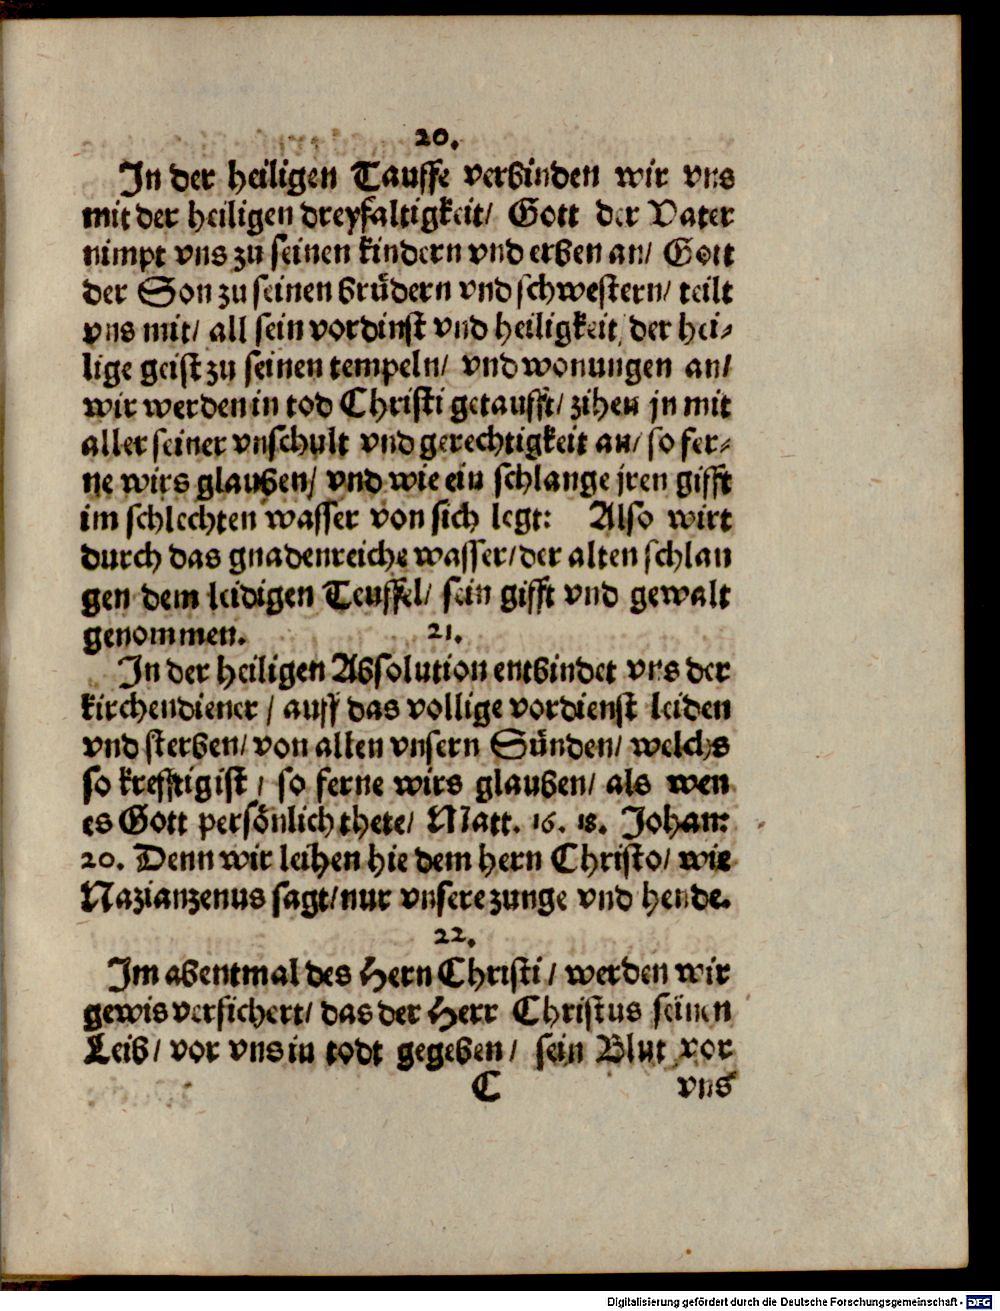 20.
In der heiligen Tauffe verbinden wir vns
mit der heiligen dreyfaltigkeit/ Gott der Vater
nimpt vns zu seinen kindern vnd erben an/ Gott
der Son zu seinen brüdern vnd schwestern/ teilt
vns mit/ all sein vordinst vnd heiligkeit, der hei-
lige geist zu seinen tempeln/ vnd wonungen an/
wir werden in tod Christi getaufft/ zihen jn mit
aller seiner vnschult vnd gerechtigkeit an/ so fer-
ne wirs glauben/ vnd wie ein schlange jren gifft
im schlechten wasser von sich legt: Also wirt
durch das gnadenreiche wasser/ der alten schlan
gen dem leidigen Teuffel/ sein gifft vnd gewalt
genommen.
21.
In der heiligen Absolution entbindet vns der
kirchendiener / auff das vollige vordienst leiden
vnd sterben/ von allen vnsern Sünden/ welchs
so krefftig ist / so ferne wirs glauben/ als wen
es Gott persönlich thete/ Matt. 16. 18. Johan:
20. Denn wir leihen hie dem hern Christo/ wie
Nazianzenus sagt/ nur vnsere zunge vnd hende.
22.
Im abentmal des Hern Christi / werden wir
gewis versichert/ das der Herr Christus seinen
Leib/ vor vns in todt gegeben / sein Blut vor
C vns
Digitalisierung gefördert durch die Deutsche Forschungsgemeinschaft - DFG